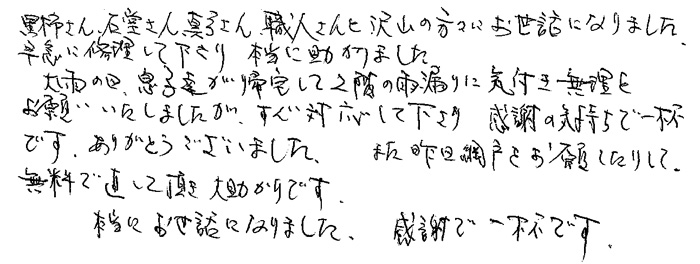 黒柿さん、石堂さん、真子さん、職人さんと沢山の方々にお世話になりました。
早急に修理して下さり 本当に助かりました。
大雨の日、息子達が帰宅して2階の雨漏りに気付き無理を
お願いいたしましたが、すぐ対応して下さり 感謝の気持ちで一杯
です。ありがとうございました。 また昨日網戸をお願したりして。
無料で直して頂き大助かりです。
本当にお世話になりました。 感謝で一杯です。